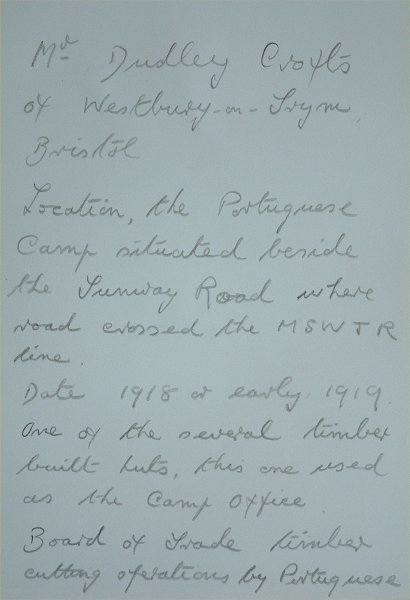 Mr Dudley Crofts
of Westbury-on-Trym,
Bristol
Location, the Portuguese
Camp situated beside
the Sunway Road where
road crossed the MSWJR
line.
Date 1918 or early 1919.
One of the several timber
built huts, this one used
as the Camp Office.
Board of Trade timber
cutting operations by Portuguese